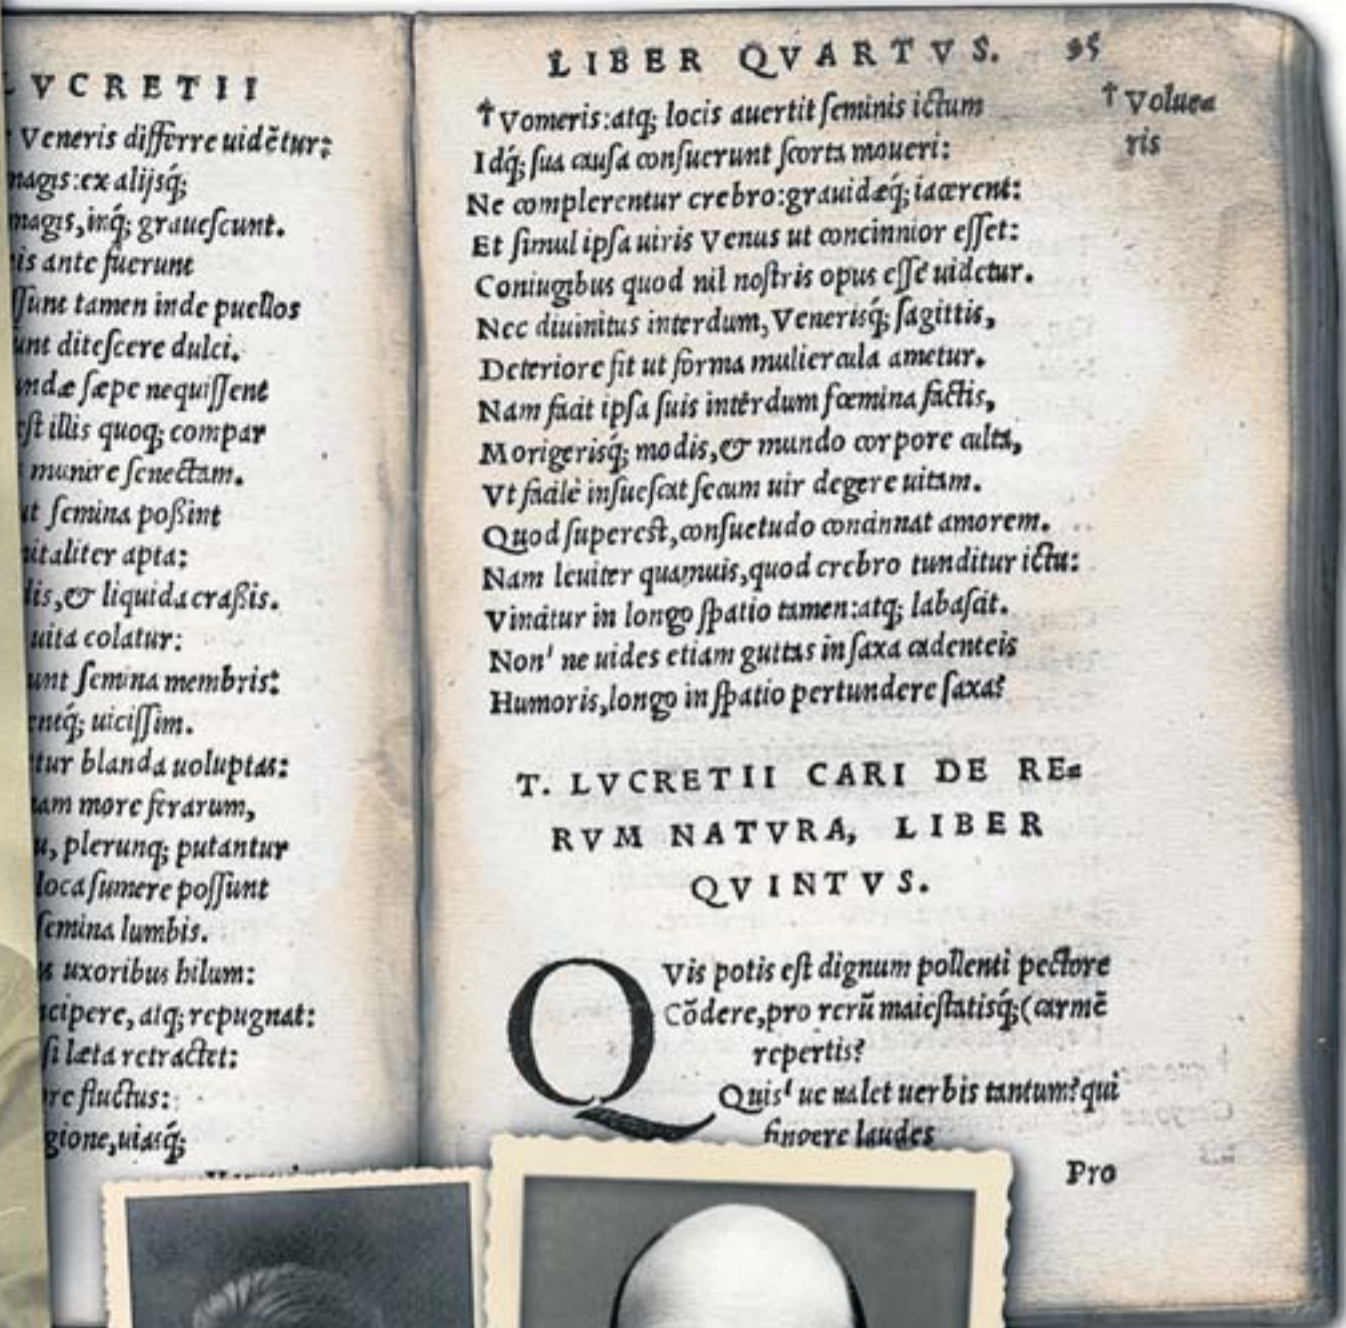 LVCRETII
Veneris differre uidẽtur:
magis:ex alijsq́;
magis,inq́; grauescunt.
is ante fuerunt
ssunt tamen inde puellos
unt ditescere dulci.
undæ sæpe nequissent
est illis quoq; compar
munire senectam.
ut semina poßint
nitaliter apta:
dis,& liquida craßis.
uita colatur:
unt semina membris:
entq́; uicissim.
tur blanda uoluptas:
am more ferarum,
u, plerunq; putantur
loca sumere possunt
semina lumbis.
s uxoribus hilum:
cipere, atq; repugnat:
si læta retractet:
re fluctus:
gione,uiasq́;
LIBER QVARTVS. 95
† Vomeris:atq; locis auertit seminis ictum
† Volue=
ris
Idq́; sua causa consuerunt scorta moueri:
Ne complerentur crebro:grauidæq́; iacerent:
Et simul ipsa uiris Venus ut concinnior esset:
Coniugibus quod nil nostris opus esse uidetur.
Nec diuinitus interdum, Venerisq́; sagittis,
Deteriore fit ut forma muliercula ametur.
Nam facit ipsa suis interdum fœmina factis,
Morigerisq́; modis,& mundo corpore culta,
Vt facilè insuescat secum uir degere uitam.
Quod superest,consuetudo concinnat amorem.
Nam leuiter quamuis,quod crebro tunditur ictu:
Vincitur in longo spatio tamen:atq; labascit.
Non' ne uides etiam guttas in saxa cadenteis
Humoris,longo in spatio pertundere saxa?
T. LVCRETII CARI DE RE=
RVM NATVRA, LIBER
QVINTVS.
QVis potis est dignum pollenti pectore
Cõdere,pro rerũ maiestatisq́;(carmẽ
repertis?
Quis' ue ualet uerbis tantum?qui
fingere laudes
Pro